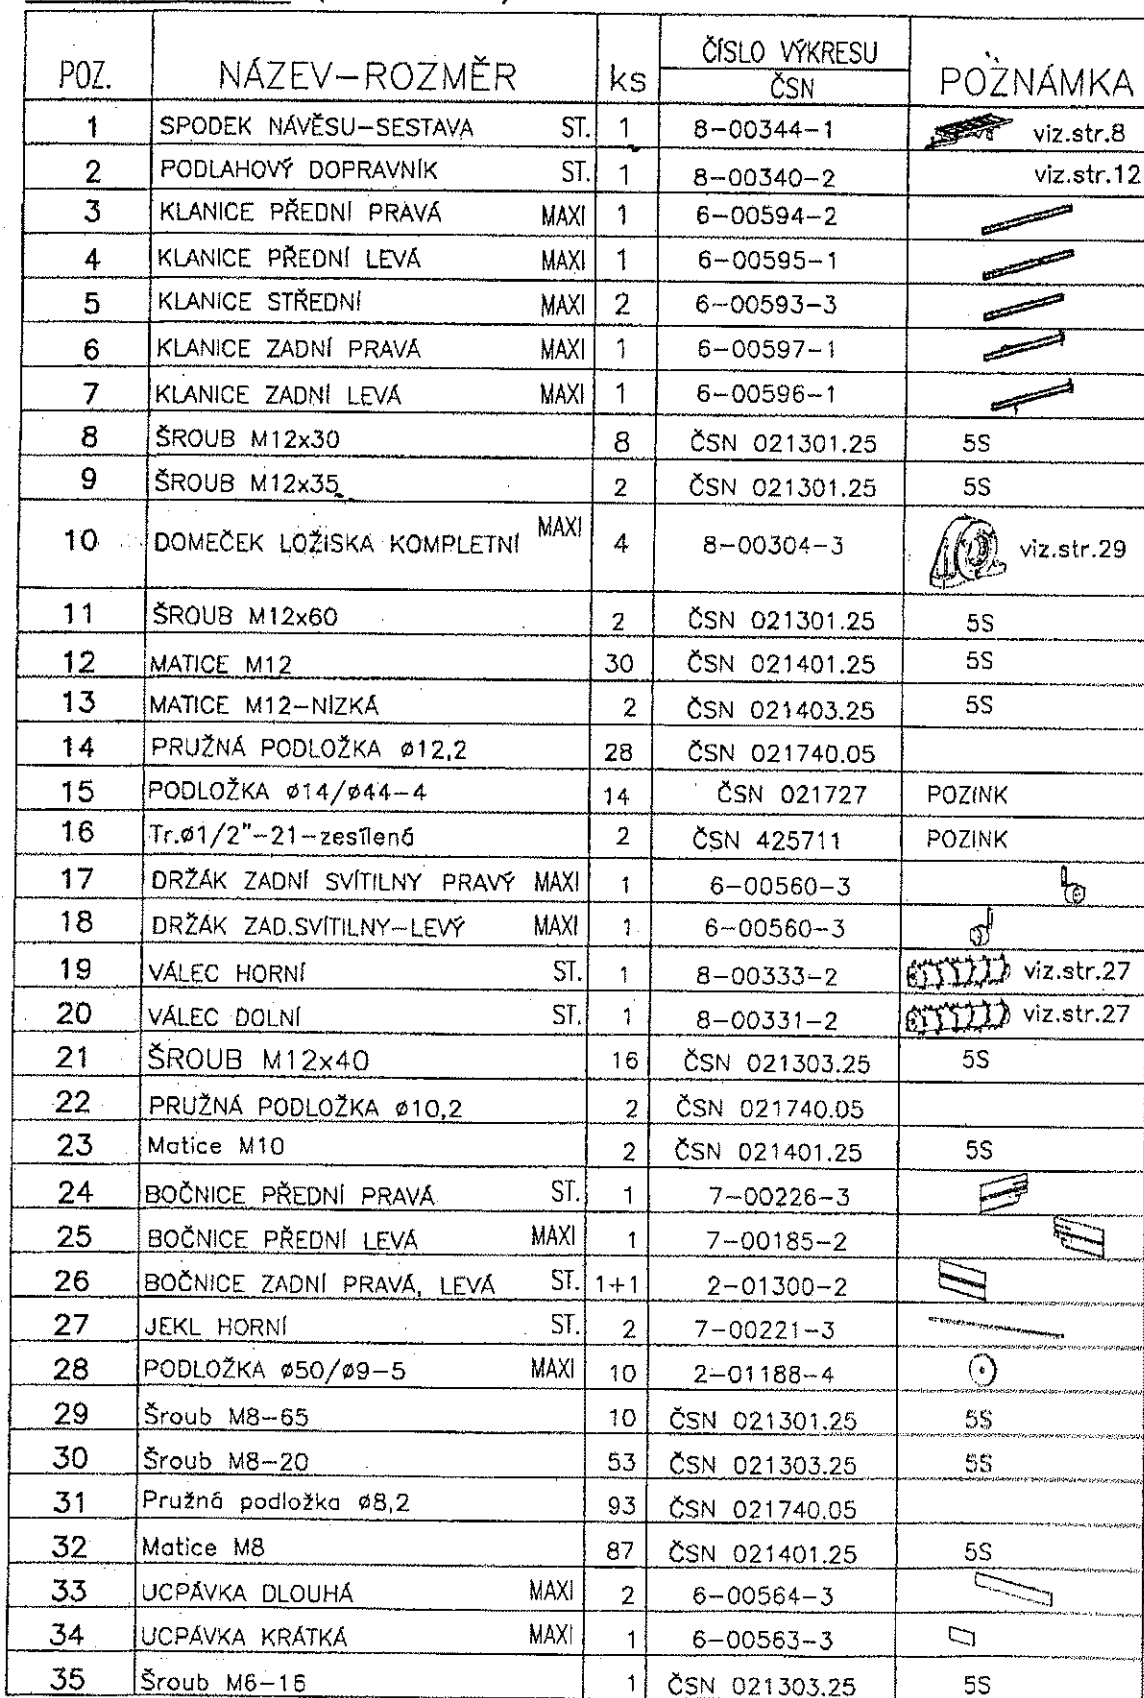 POZ. NÁZEV-ROZMĚR ks ČÍSLO VÝKRESU ČSN POZNÁMKA
1 SPODEK NÁVĚSU-SESTAVA ST. 1 8-00344-1 viz.str.8
2 PODLAHOVÝ DOPRAVNÍK ST. 1 8-00340-2 viz.str.12
3 KLANICE PŘEDNÍ PRAVÁ MAXI 1 6-00594-2
4 KLANICE PŘEDNÍ LEVÁ MAXI 1 6-00595-1
5 KLANICE STŘEDNÍ MAXI 2 6-00593-3
6 KLANICE ZADNÍ PRAVÁ MAXI 1 6-00597-1
7 KLANICE ZADNÍ LEVÁ MAXI 1 6-00596-1
8 ŠROUB M12x30 8 ČSN 021301.25 5S
9 ŠROUB M12x35 2 ČSN 021301.25 5S
10 DOMEČEK LOŽISKA KOMPLETNÍ MAXI 4 8-00304-3 viz.str.29
11 ŠROUB M12x60 2 ČSN 021301.25 5S
12 MATICE M12 30 ČSN 021401.25 5S
13 MATICE M12-NIZKÁ 2 ČSN 021403.25 5S
14 PRUŽNÁ PODLOŽKA ø12,2 28 ČSN 021740.05
15 PODLOŽKA ø14/ø44-4 14 ČSN 021727 POZINK
16 Tr.ø1/2"-21-zesílená 2 ČSN 425711 POZINK
17 DRŽÁK ZADNÍ SVÍTILNY PRAVÝ MAXI 1 6-00560-3
18 DRŽÁK ZAD.SVÍTILNY-LEVÝ MAXI 1 6-00560-3
19 VÁLEC HORNÍ ST. 1 8-00333-2 viz.str.27
20 VÁLEC DOLNÍ ST. 1 8-00331-2 viz.str.27
21 ŠROUB M12x40 16 ČSN 021303.25 5S
22 PRUŽNÁ PODLOŽKA ø10,2 2 ČSN 021740.05
23 Matice M10 2 ČSN 021401.25 5S
24 BOČNICE PŘEDNÍ PRAVÁ ST. 1 7-00226-3
25 BOČNICE PŘEDNÍ LEVÁ MAXI 1 7-00185-2
26 BOČNICE ZADNÍ PRAVÁ, LEVÁ ST. 1+1 2-01300-2
27 JEKL HORNÍ ST. 2 7-00221-3
28 PODLOŽKA ø50/ø9-5 MAXI 10 2-01188-4
29 Šroub M8-65 10 ČSN 021301.25 5S
30 Šroub M8-20 53 ČSN 021303.25 5S
31 Pružná podložka ø8,2 93 ČSN 021740.05
32 Matice M8 87 ČSN 021401.25 5S
33 UCPÁVKA DLOUHÁ MAXI 2 6-00564-3
34 UCPÁVKA KRÁTKÁ MAXI 1 6-00563-3
35 Šroub M6-16 1 ČSN 021303.25 5S